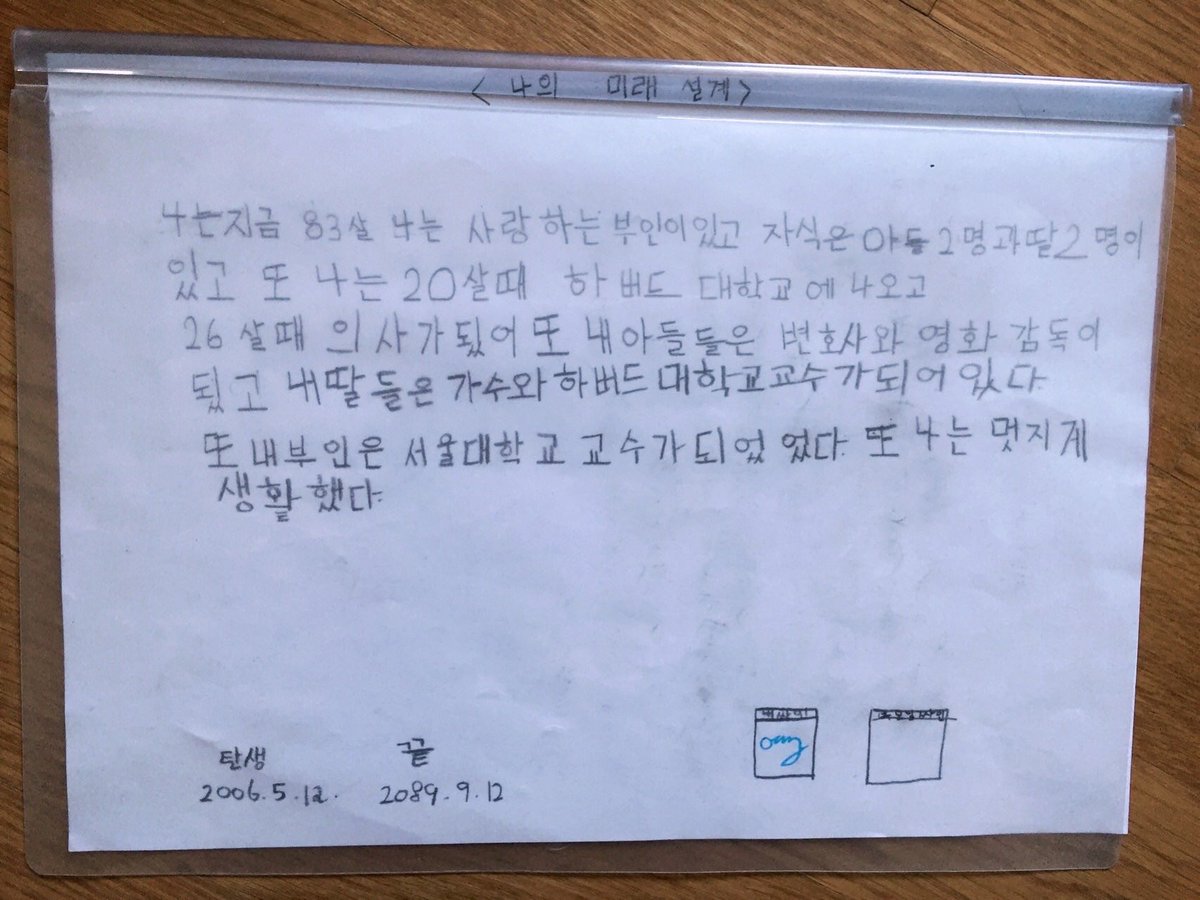 < 나의 미래 설계 >
나는지금 83살 나는 사랑하는부인이있고 자식은 아들2명과딸2명이
있고 또 나는 20살때 하버드 대학교에 나오고
26살때 의사가됬어 또 내아들들은 변호사와 영화 감독이
됬고 내딸들은 가수와하버드대학교교수가되어있다
또내부인은 서울대학교 교수가되었었다. 또 나는 멋지게
생활했다.
탄생 끝
2006.5.12. 2089.9.12